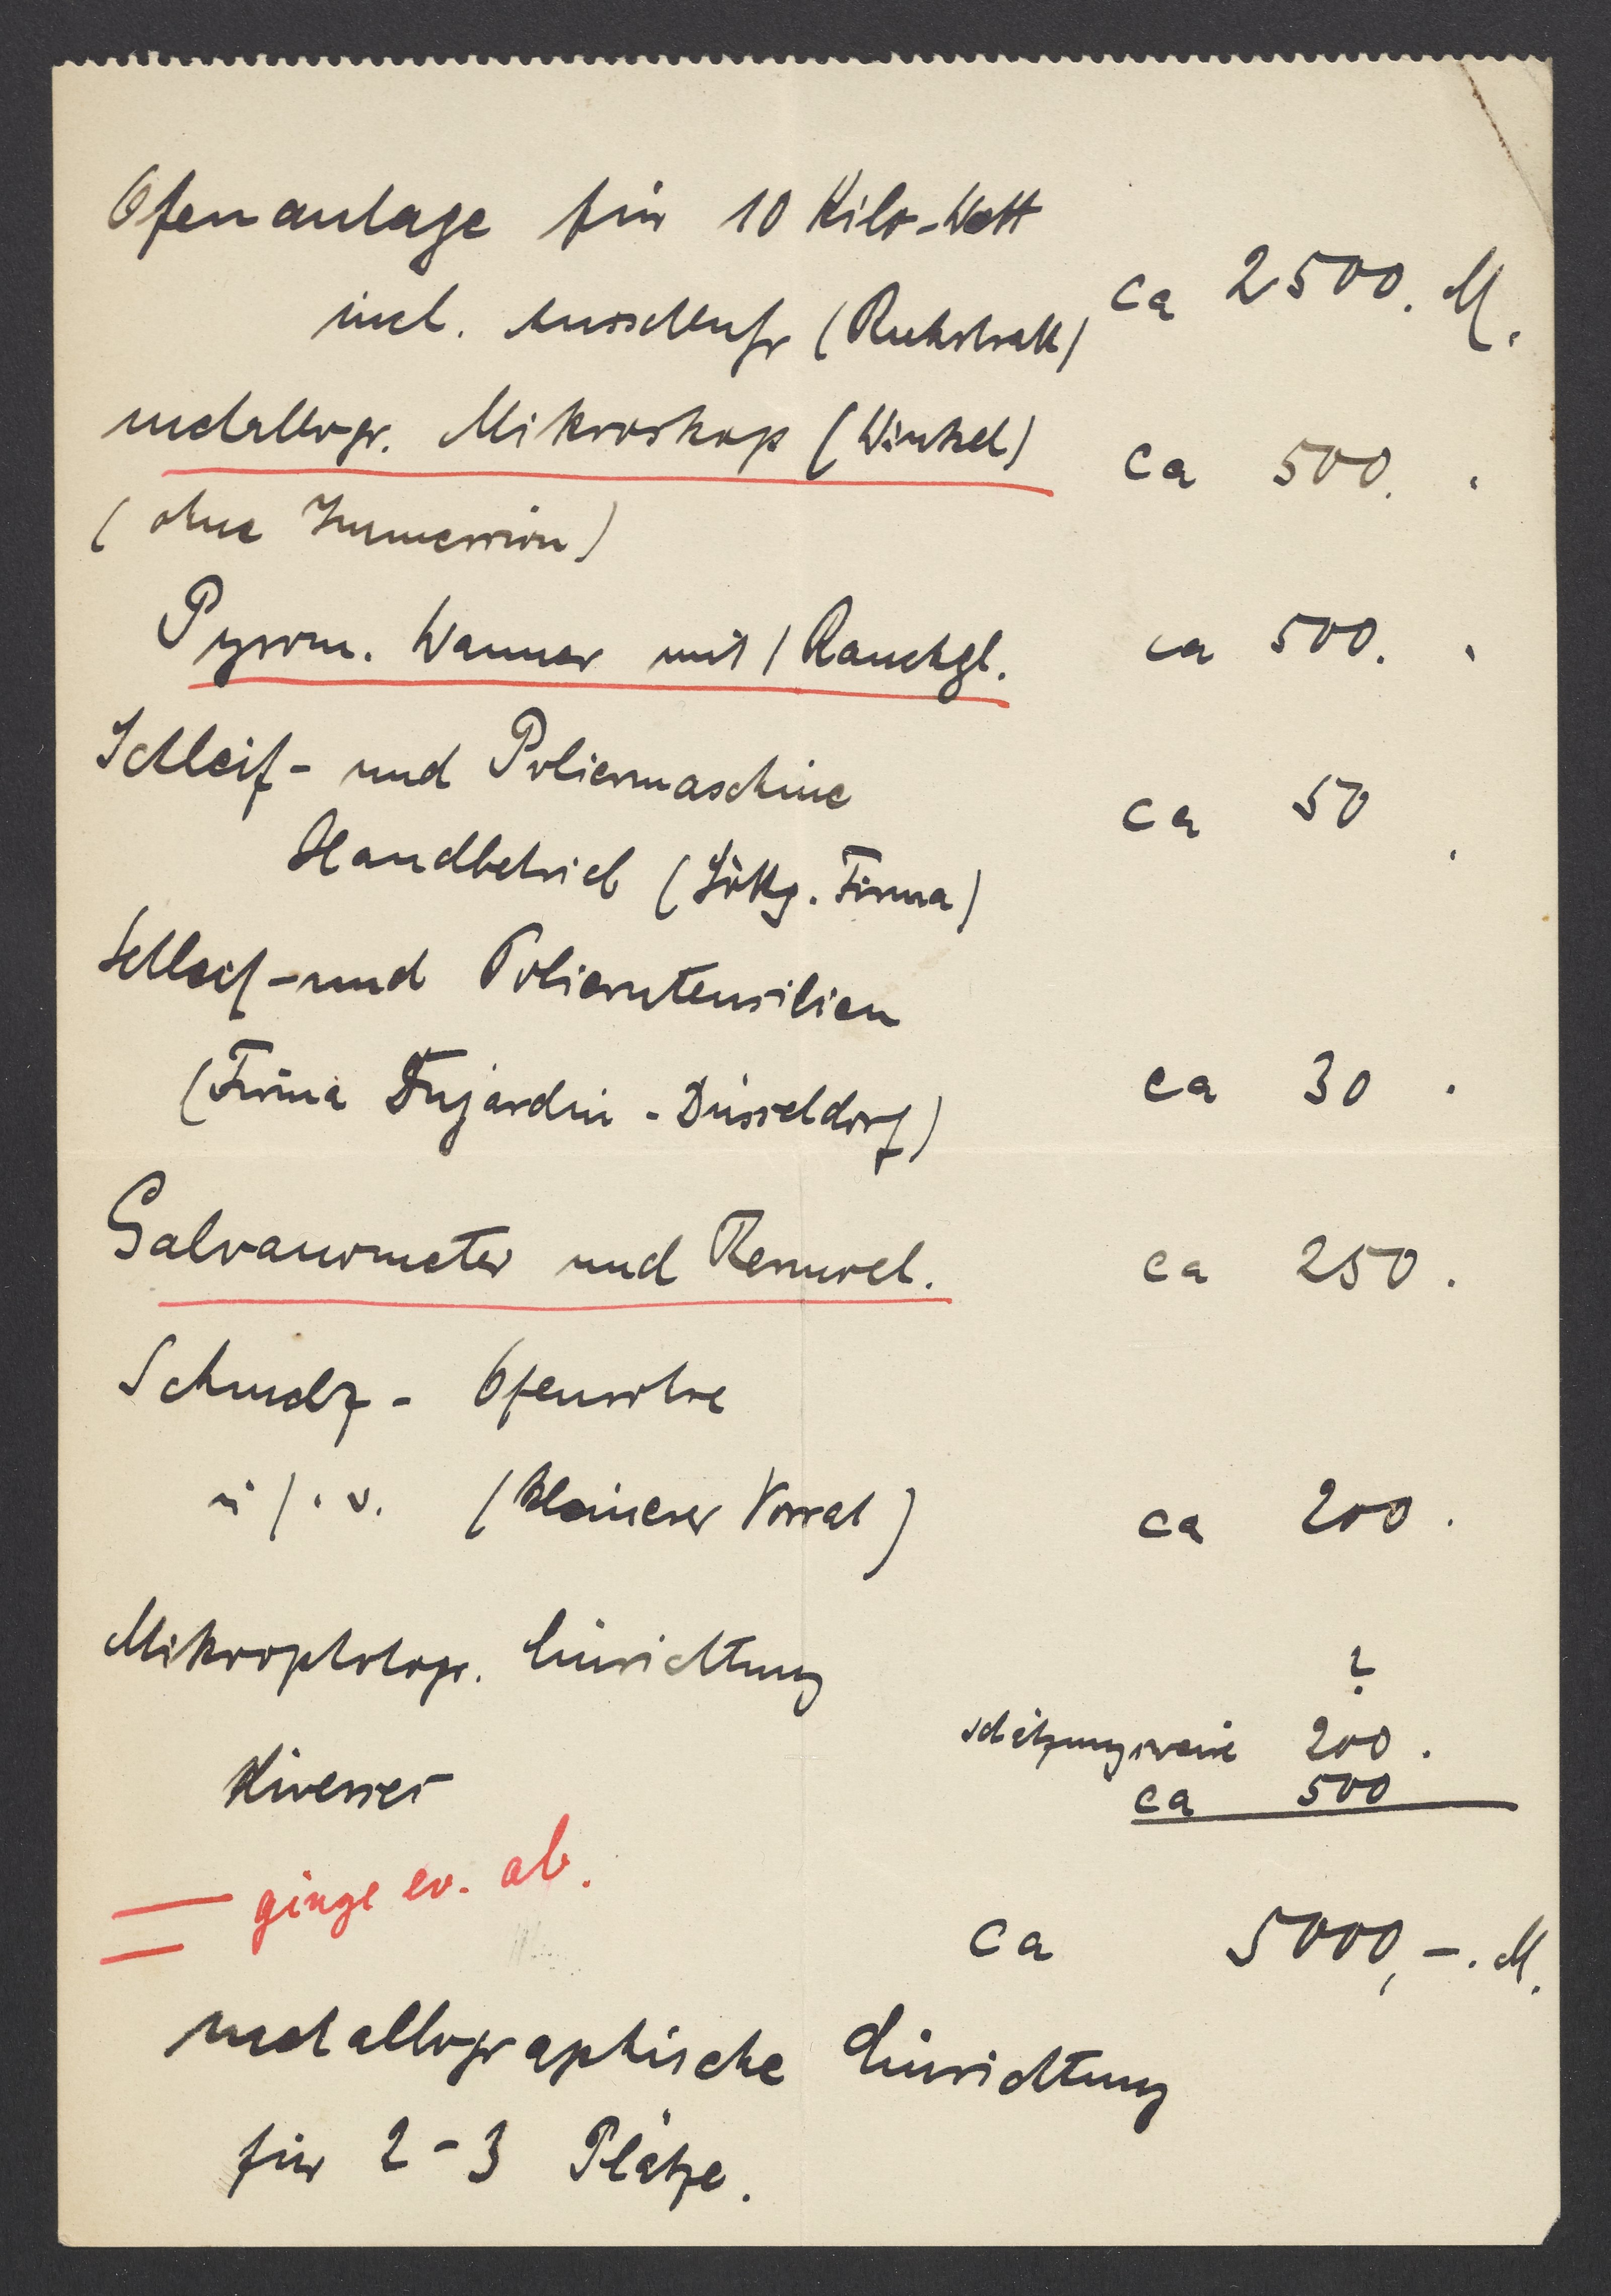 Ofenanlage für 10 Kilo-Watt
incl. Anschluss (Ruhstratt) ca 2500. M.
metallogr. Mikroskop (Winkel) ca 500.
(ohne Immersion)
Pyrom. Wanner mit 1 Rauchgl. ca 500.
Schleif- und Poliermaschine ca 50
Handbetrieb (Göttg. Firma)
Schleif- und Polierutensilien
(Firma Dujardin - Düsseldorf) ca 30
Galvanometer und ca 250.
Schmelz- Ofenrohre
u s. v. (kleinerer Vorrat) ca 200.
Mikrophotogr. Einrichtung ?
schätzungsweise 200.
Diverses ca 500
ginge ev. ab.
ca 5000,-. M.
metallographische Einrichtung
für 2-3 Plätze.